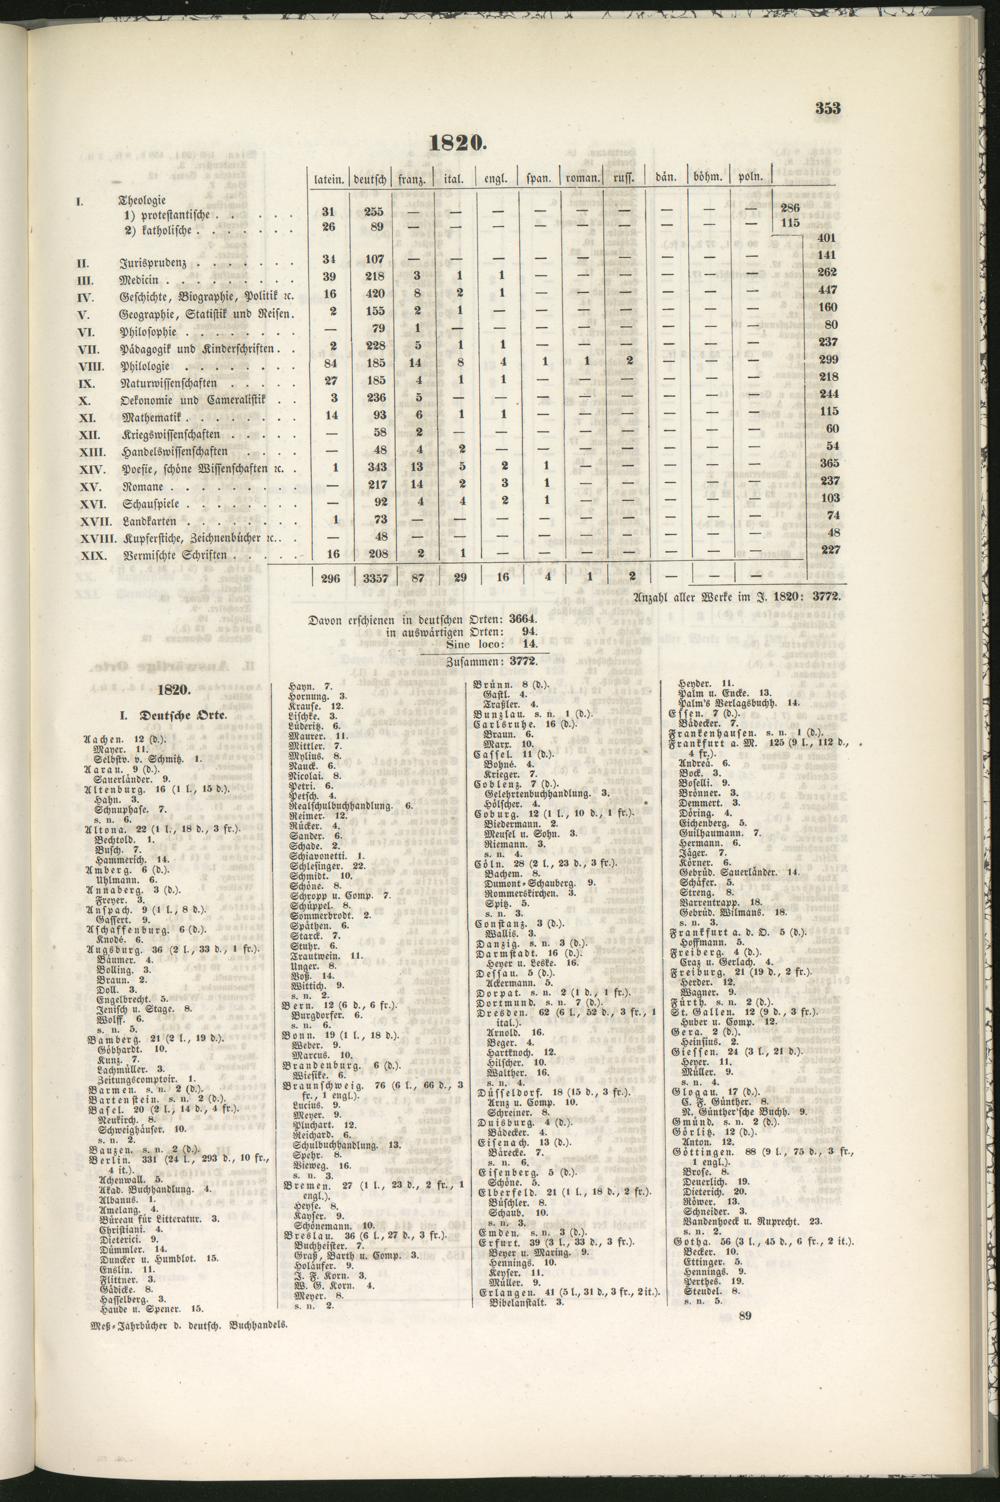 353
1820.
latein. deutsch franz. ital. engl. span. roman. russ. dän. böhm. poln.
I. Theologie
1) protestantische . . . . . . 31 255 — — — — — — — — — 286
2) katholische . . . . . . . 26 89 — — — — — — — — — 115
401
II. Jurisprudenz . . . . . . . 34 107 — — — — — — — — — 141
III. Medicin . . . . . . . . . 39 218 3 1 1 — — — — — — 262
IV. Geschichte, Biographie, Politik ꝛc. 16 420 8 2 1 — — — — — — 447
V. Geographie, Statistik und Reisen. 2 155 2 1 — — — — — — — 160
VI. Philosophie . . . . . . . . — 79 1 — — — — — — — — 80
VII. Pädagogik und Kinderschriften . . 2 228 5 1 1 — — — — — — 237
VIII. Philologie . . . . . . . . 84 185 14 8 4 1 1 2 — — — 299
IX. Naturwissenschaften . . . . . 27 185 4 1 1 — — — — — — 218
X. Oekonomie und Cameralistik . . 3 236 5 — — — — — — — — 244
XI. Mathematik . . . . . . . . 14 93 6 1 1 — — — — — — 115
XII. Kriegswissenschaften . . . . . — 58 2 — — — — — — — — 60
XIII. Handelswissenschaften . . . . — 48 4 2 — — — — — — — 54
XIV. Poesie, schöne Wissenschaften ꝛc. . 1 343 13 5 2 1 — — — — — 365
XV. Romane . . . . . . . . . — 217 14 2 3 1 — — — — — 237
XVI. Schauspiele . . . . . . . . — 92 4 4 2 1 — — — — — 103
XVII. Landkarten . . . . . . . . 1 73 — — — — — — — — — 74
XVIII. Kupferstiche, Zeichnenbücher ꝛc. . . — 48 — — — — — — — — — 48
XIX. Vermischte Schriften . . . . . 16 208 2 1 — — — — — — — 227
296 3357 87 29 16 4 1 2 — — —
Anzahl aller Werke im J. 1820: 3772.
Davon erschienen in deutschen Orten: 3664.
in auswärtigen Orten: 94.
Sine loco: 14.
Zusammen: 3772.
1820.
I. Deutsche Orte.
Aachen. 12 (d.).
Mayer. 11.
Selbstv. v. Schmitz. 1.
Aarau. 9 (d.).
Sauerländer. 9.
Altenburg. 16 (1 l., 15 d.).
Hahn. 3.
Schnuphase. 7.
s. n. 6.
Altona. 22 (1 l., 18 d., 3 fr.).
Bechtold. 1.
Busch. 7.
Hammerich. 14.
Amberg. 6 (d.).
Uhlmann. 6.
Annaberg. 3 (d.).
Freyer. 3.
Anspach. 9 (1 l., 8 d.).
Gassert. 9.
Aschaffenburg. 6 (d.).
Knode. 6.
Augsburg. 36 (2 l., 33 d., 1 fr.).
Bäumer. 4.
Bolling. 3.
Braun. 2.
Doll. 3.
Engelbrecht. 5.
Jenisch u. Stage. 8.
Wolff. 6.
s. n. 5.
Bamberg. 21 (2 l., 19 d.).
Göbhardt. 10.
Kunz. 7.
Lachmüller. 3.
Zeitungscomptoir. 1.
Barmen. s. n. 2 (d.).
Bartenstein. s. n. 2 (d.).
Basel. 20 (2 l., 14 d., 4 fr.).
Neukirch. 8.
Schweighäuser. 10.
s. n. 2.
Bauzen. s. n. 2 (d.).
Berlin. 331 (24 l., 293 d., 10 fr.,
4 it.).
Achenwall. 5.
Akad. Buchhandlung. 4.
Albanus. 1.
Amelang. 4.
Büreau für Litteratur. 3.
Christiani. 4.
Dieterici. 9.
Dümmler. 14.
Duncker u. Humblot. 15.
Enslin. 11.
Flittner. 3.
Gädicke. 8.
Hasselberg. 3.
Haude u. Spener. 15.
Hayn. 7.
Hornung. 3.
Krause. 12.
Lischke. 3.
Lüderitz. 6.
Maurer. 11.
Mittler. 7.
Mylius. 8.
Nauck. 6.
Nicolai. 8.
Petri. 6.
Petsch. 4.
Realschulbuchhandlung. 6.
Reimer. 12.
Rücker. 4.
Sander. 6.
Schade. 2.
Schiavonetti. 1.
Schlesinger. 22.
Schmidt. 10.
Schöne. 8.
Schropp u. Comp. 7.
Schüppel. 8.
Sommerbrodt. 2.
Späthen. 6.
Starck. 7.
Stuhr. 6.
Trautwein. 11.
Unger. 8.
Voß. 14.
Wittich. 9.
s. n. 2.
Bern. 12 (6 d., 6 fr.).
Burgdorfer. 6.
s. n. 6.
Bonn. 19 (1 l., 18 d.).
Weber. 9.
Marcus. 10.
Brandenburg. 6 (d.).
Wiesike. 6.
Braunschweig. 76 (6 l., 66 d., 3
fr., 1 engl.).
Lucius. 9.
Meyer. 9.
Pluchart. 12.
Reichard. 6.
Schulbuchhandlung. 13.
Spehr. 8.
Vieweg. 16.
s. n. 3.
Bremen. 27 (1 l., 23 d., 2 fr., 1
engl.).
Heyse. 8.
Kayser. 9.
Schönemann. 10.
Breslau. 36 (6 l., 27 d., 3 fr.).
Buchheister. 7.
Graß, Barth u. Comp. 3.
Holäufer. 9.
J. F. Korn. 3.
W. G. Korn. 4.
Meyer. 8.
s. n. 2.
Brünn. 8 (d.).
Gastl. 4.
Traßler. 4.
Bunzlau. s. n. 1 (d.).
Carlsruhe. 16 (d.).
Braun. 6.
Marx. 10.
Cassel. 11 (d.).
Bohné. 4.
Krieger. 7.
Coblenz. 7 (d.).
Gelehrtenbuchhandlung. 3.
Hölscher. 4.
Coburg. 12 (1 l., 10 d., 1 fr.).
Biedermann. 2.
Meusel u. Sohn. 3.
Riemann. 3.
s. n. 4.
Cöln. 28 (2 l., 23 d., 3 fr.).
Bachem. 8.
Dumont-Schauberg. 9.
Rommerskirchen. 3.
Spitz. 5.
s. n. 3.
Constanz. 3 (d.).
Wallis. 3.
Danzig. s. n. 3 (d.).
Darmstadt. 16 (d.).
Heyer u. Leske. 16.
Dessau. 5 (d.).
Ackermann. 5.
Dorpat. s. n. 2 (1 d., 1 fr.).
Dortmund. s. n. 7 (d.).
Dresden. 62 (6 l., 52 d., 3 fr., 1
ital.).
Arnold. 16.
Beger. 4.
Hartknoch. 12.
Hilscher. 10.
Walther. 16.
s. n. 4.
Düsseldorf. 18 (15 d., 3 fr.).
Arnz u. Comp. 10.
Schreiner. 8.
Duisburg. 4 (d.).
Bädecker. 4.
Eisenach. 13 (d.).
Bärecke. 7.
s. n. 6.
Eisenberg. 5 (d.).
Schöne. 5.
Elberfeld. 21 (1 l., 18 d., 2 fr.).
Büschler. 8.
Schaub. 10.
s. n. 3.
Emden. s. n. 3 (d.).
Erfurt. 39 (3 l., 33 d., 3 fr.).
Beyer u. Maring. 9.
Hennings. 10.
Keyser. 11.
Müller. 9.
Erlangen. 41 (5 l., 31 d., 3 fr., 2 it.).
Bibelanstalt. 3.
Heyder. 11.
Palm u. Encke. 13.
Palm's Verlagsbuchh. 14.
Essen. 7 (d.).
Bädecker. 7.
Frankenhausen. s. n. 1 (d.).
Frankfurt a. M. 125 (9 l., 112 d.,
4 fr.).
Andreä. 6.
Bock. 3.
Boselli. 9.
Brönner. 3.
Demmert. 3.
Döring. 4.
Eichenberg. 5.
Guilhaumann. 7.
Hermann. 6.
Jäger. 7.
Körner. 6.
Gebrüd. Sauerländer. 14.
Schäfer. 5.
Streng. 8.
Varrentrapp. 18.
Gebrüd. Wilmans. 18.
s. n. 3.
Frankfurt a. d. O. 5 (d.).
Hoffmann. 5.
Freiberg. 4 (d.).
Craz u. Gerlach. 4.
Freiburg. 21 (19 d., 2 fr.).
Herder. 12.
Wagner. 9.
Fürth. s. n. 2 (d.).
St. Gallen. 12 (9 d., 3 fr.).
Huber u. Comp. 12.
Gera. 2 (d.).
Heinsius. 2.
Giessen. 24 (3 l., 21 d.).
Heyer. 11.
Müller. 9.
s. n. 4.
Glogau. 17 (d.).
C. F. Günther. 8.
N. Günther'sche Buchh. 9.
Gmünd. s. n. 2 (d.).
Görlitz. 12 (d.).
Anton. 12.
Göttingen. 88 (9 l., 75 d., 3 fr.,
1 engl.).
Brose. 8.
Deuerlich. 19.
Dieterich. 20.
Röwer. 13.
Schneider. 3.
Vandenhoeck u. Ruprecht. 23.
s. n. 2.
Gotha. 56 (3 l., 45 d., 6 fr., 2 it.).
Becker. 10.
Ettinger. 5.
Hennings. 9.
Perthes. 19.
Steudel. 8.
s. n. 5.
Meß-Jahrbücher d. deutsch. Buchhandels.
89